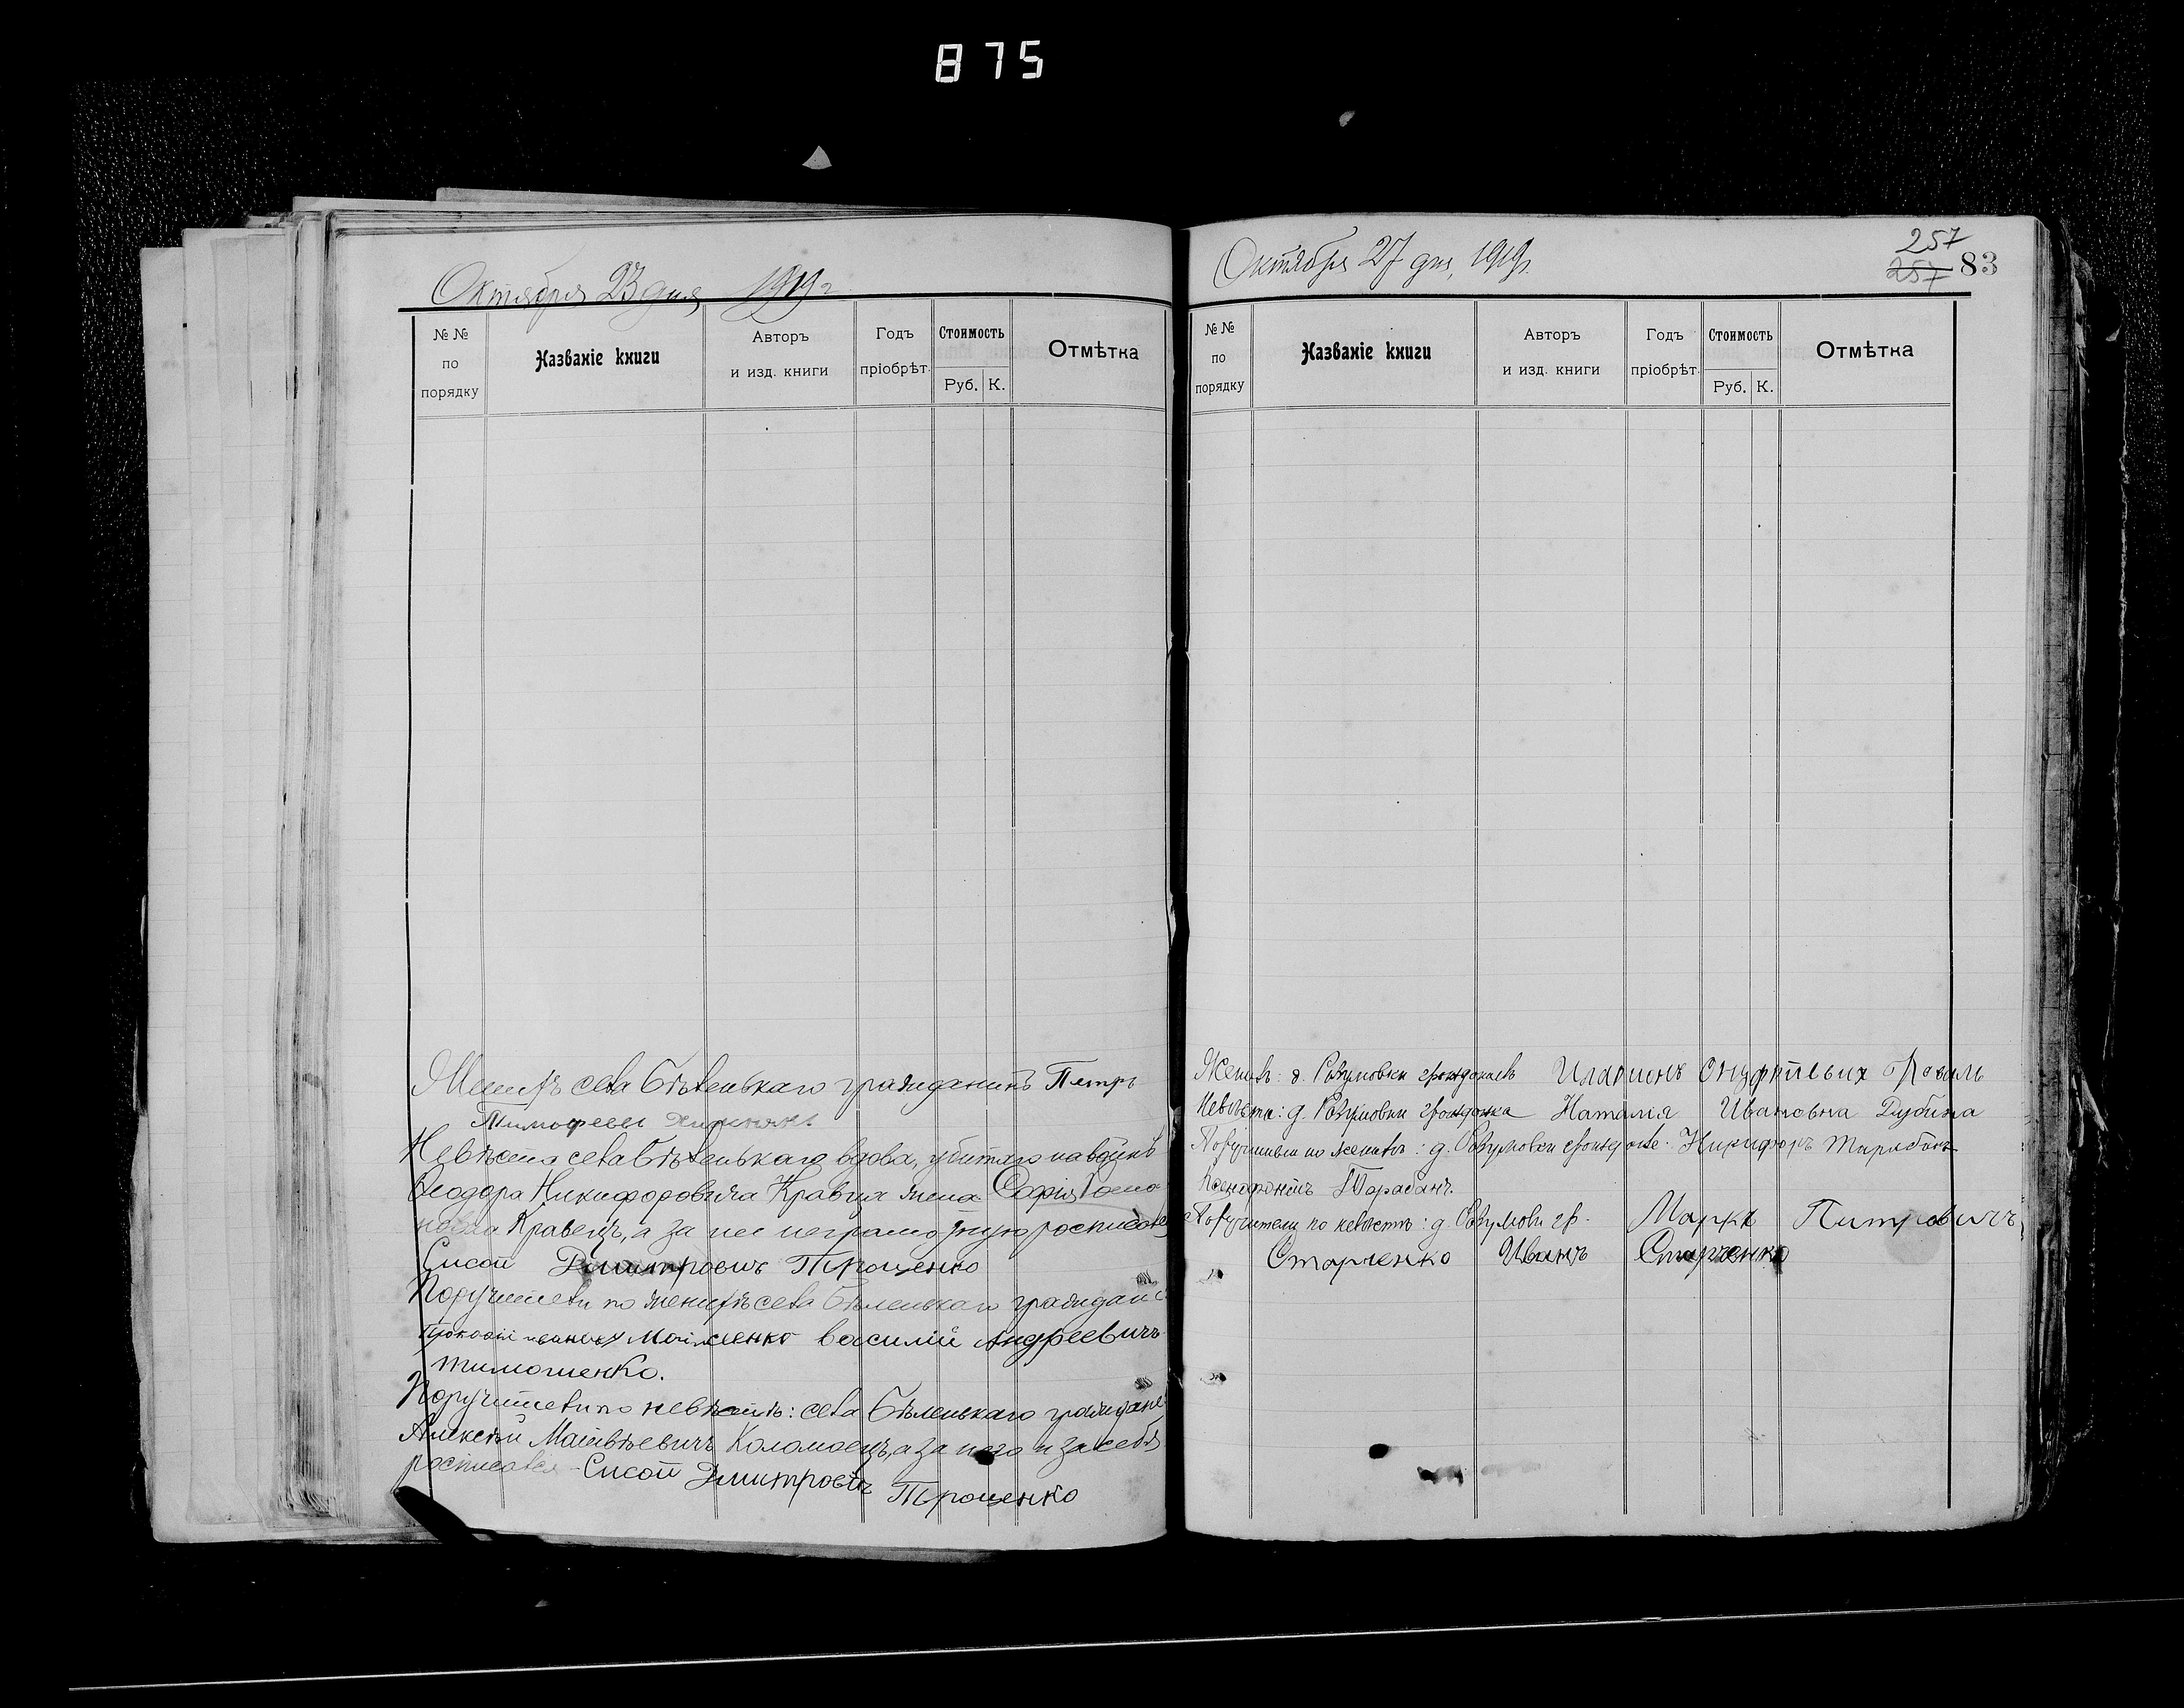 875
Октября 23 дня 1919 г.
№№ по порядку
Названіе книги
Авторъ и изд. книги
Годъ пріобрѣт.
Стоимость
Руб. К.
Отмѣтка
Женихъ села Бѣленькаго гражданинъ Петръ
Тимофеев
Невѣста села Бѣленькаго вдова, убитаго на войнѣ
Ѳеодора Никифоровича Кравца жена София
Кравецъ, а за нее неграмотную росписался
Сисой Дмитровичъ Троценко
Поручители по женихѣ села Бѣленькаго граждане
Василий Андреевичъ
Тимошенко.
Поручители по невѣстѣ: села Бѣленькаго граждане
Алексѣй Матвѣевичъ Коломоецъ, а за него и за себя
росписался Сисой Дмитровичъ Троценко
Октября 27 дня, 1919 г.
257
257 83
№№ по порядку
Названіе книги
Авторъ и изд. книги
Годъ пріобрѣт.
Стоимость
Руб. К.
Отмѣтка
Женихъ: д. Разумовки Коваль
Невѣста: д. Разумовки гражданка Наталія Ивановна Дубина
Поручители по женихѣ: д. Разумовки Никифоръ
Ксенофонтъ Тарабанъ.
Поручители по невѣстѣ: д. Разумовки гр. Марко Питровичъ
Старченко Иванъ Старченко